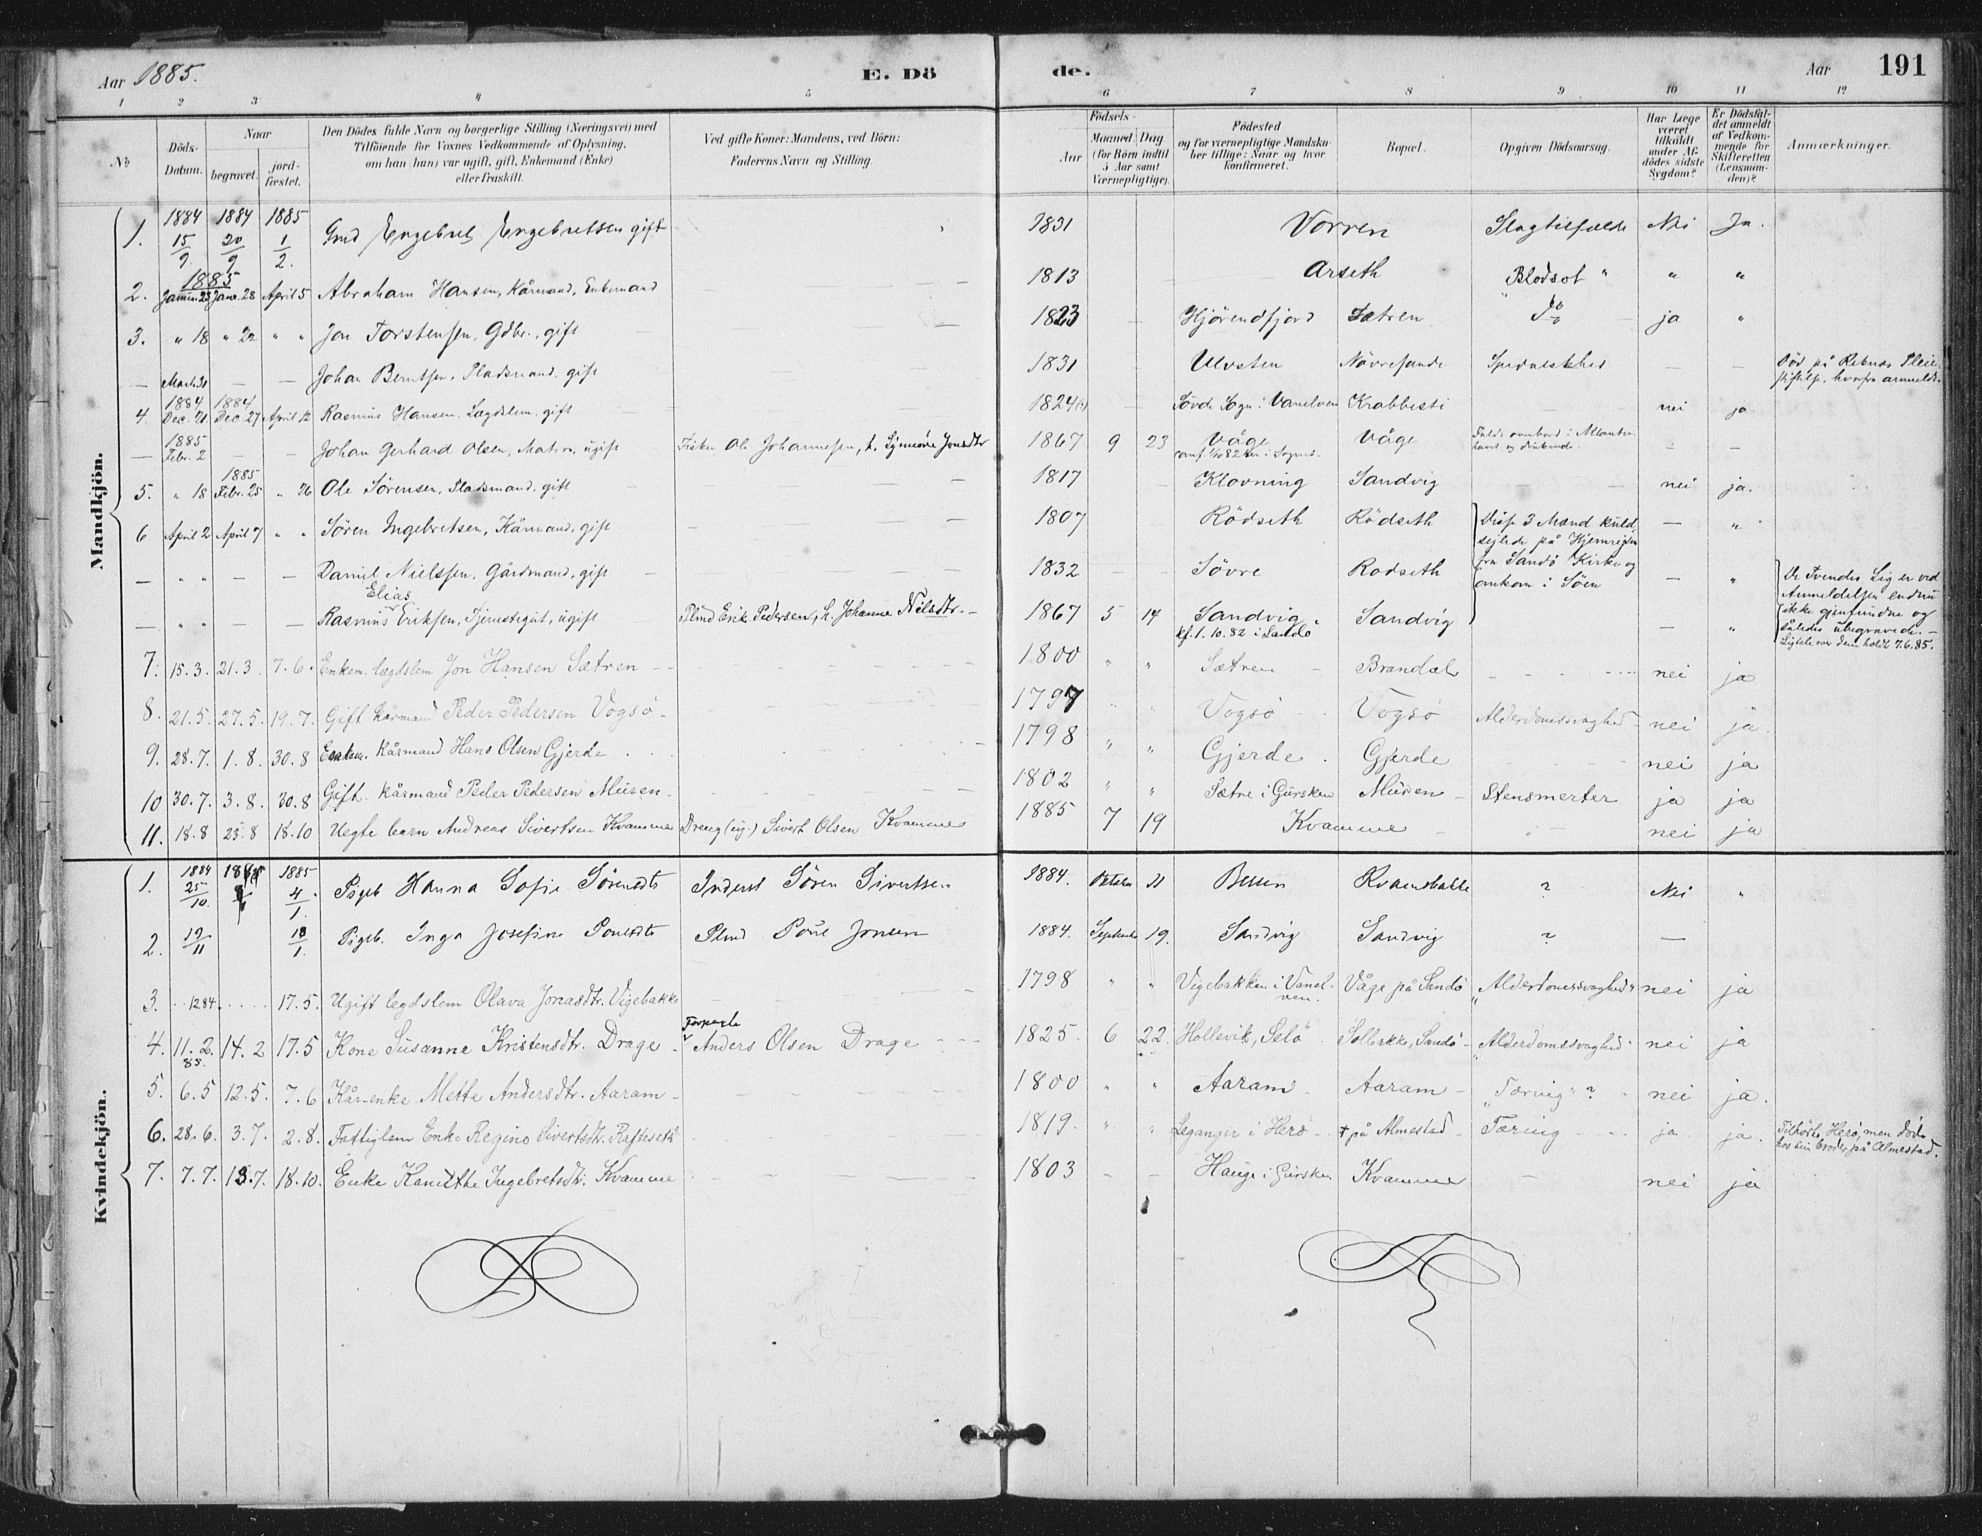 Aar 1885. E. Dö de. Aar 191
1 2 3 4 5 6 7 8 9 10 11 12
No
Döds-Datum.
Naar
begravet.
jord-fæstet.
Den Dödes fulde Navn og borgerlige Stilling (Næringsvei) med
Tilföiende for Voxnes Vedkommende af Oplysning,
om han (hun) var ugift, gift, Enkemand (Enke)
eller fraskilt.
Ved gifte Koner: Mandens, ved Börn:
Faderens Navn og Stilling.
Födsels-
Aar
Maaned Dag
(for Börn indtil
5 Aar samt
Værnepligtige).
Födested
og for værnepligtige Mandskaber tillige: Naar og hvor
konfirmeret.
Bopæl.
Opgiven Dödsaarsag.
Har Læge
været
tilkaldt
under Afdödes sidste
Sygdom?
Er Dödsfaldet anmeldt
af Vedkommende for
Skifteretten
(Lensmanden)?
Anmærkninger.
Mandkjön.
1884 1884 1885
1. 15/9 20/9 1/2. Gmd Engebret Engebretsen gift 1831 Vorren Slagtilfælde Nei Ja.
1885
2. Januar 23 Janr. 28 April 5 Abraham Hansen, Kårmand, Enkemand 1813 Arseth Blodsot " " "
3. " 18 " 22 " " Jon Torstensen, Gdbr., gift 1823 Hjørendfjord Sætren do ja "
— Marts 31 — — Johan Berntsen, Pladsmand, gift 1831 Ulvsten Növresunde Spedalskhed — — Död på Reknæs Pleie-
stiftelse, hvorfra anmeldt.
1884 1884
4. Dec. 21 Dec. 27 April 12 Rasmus Hansen, Lægdslem, gift 1824 Sövde Sogn i Vanelven Krabbesti nei ja.
1885
— Febr. 2 Johan Gerhard Olsen, Matros, ugift Fisker Ole Johannesen, h. Synnöve Jonsdtr 1867 9 23 Våge Våge Faldt overbord i Atlanter-
havet og druknede. — —
1885
5. " 18 Febr. 25 " 26 Ole Sörensen, Pladsmand, gift 1817 Klovning Sandvig nei ja.
6 April 2 April 7 " " Sören Ingebretsen, Kårmand, gift 1807 Rödseth Rödseth Disse 3 Mænd kuld-
sejlede på Hjemrejsen
fra Sandö Kirke og
omkom i Söen — "
— " " — — Daniel Nielssen, Gårdmand, gift 1832 Sövre Rödseth — " De Tvendes Lig er ved
Anmeldelsen endnu
ikke gjenfundne og
således ubegravede. —
Elias
— " " — — Rasmus Eriksen, Tjenestegut, ugift Plmd Erik Pedersen, h. Johanne Nilsdtr. — 1867 5 14 Sandvig Sandvig — "
kf. 1.10.82 i Sandö
7. 15.3. 21.3. 7.6. Enkem. lægdslem Jon Hansen Sætren 1800 " " Sætren Brandal nei ja
8. 21.5. 27.5. 19.7. Gift kårmand Peder Pedersen Vogsö 1797 Vogsö Vogsö Alderdomssvaghed nei ja
9. 28.7. 1.8. 30.8 Enkem. kårmand Hans Olsen Gjerde 1798 " " Gjerde Gjerde nei ja
10 30.7. 3.8. 30.8 Gift. kårmand Peder Pedersen Muren 1802 " " Sætre i Gursken Muren Stensmerter ja ja
11. 18.8 23.8 18.10 Uegte barn Andreas Sivertsen Kvamme Dreng (ug.) Sivert Olsen Kvamme 1885 7 19 Kvamme nei ja
Kvindekjön.
1884 1885
1. 25/10. 4/1. Pigeb Hanna Sofie Sörensdtr Inderst Sören Sivertsen 1884. Oktober 11 ? Nei "
2. 19/11 Pigeb. Inga Josefine Poulsdtr Plmd Poul Jonsen 1884. September 19. Sandvig Sandvig ? —
3. 12 84. 17.5. Ugift legdslem Olava Jonasdtr. Vigebakke 1798 " " Vigebakken i Vanel-
ven. Våge på Sandö "Alderdomssvaghed" nei ja
Forpagte
4. 11.2. 85. 14.2 17.5 Kone Susanne Kristensdtr. Drage Anders Olsen Drage 1825. 6 22. Hollevik, Selö Alderdomssvaghed nei ja
5. 6.5 12.5. 7.6 Kår-enke Mette Andersdtr. Aaram 1800 " " Aaram Aaram "Tæring" ? nei ja.
6. 28.6. 3.7. 2.8. Fattiglem Enke Regine Sivertsdtr. Rafteseth 1819. " " Leganger i Herö + på Almestad Tæring ja ja. Tilhörte Herö, men döde
hos sin broder på Almestad.
7. 7.7. 13.7 18.10. Enke Kanutthe Ingebretsdtr. Kvamme 1803 — — Hauge i Gursken Kvamme — nei ja